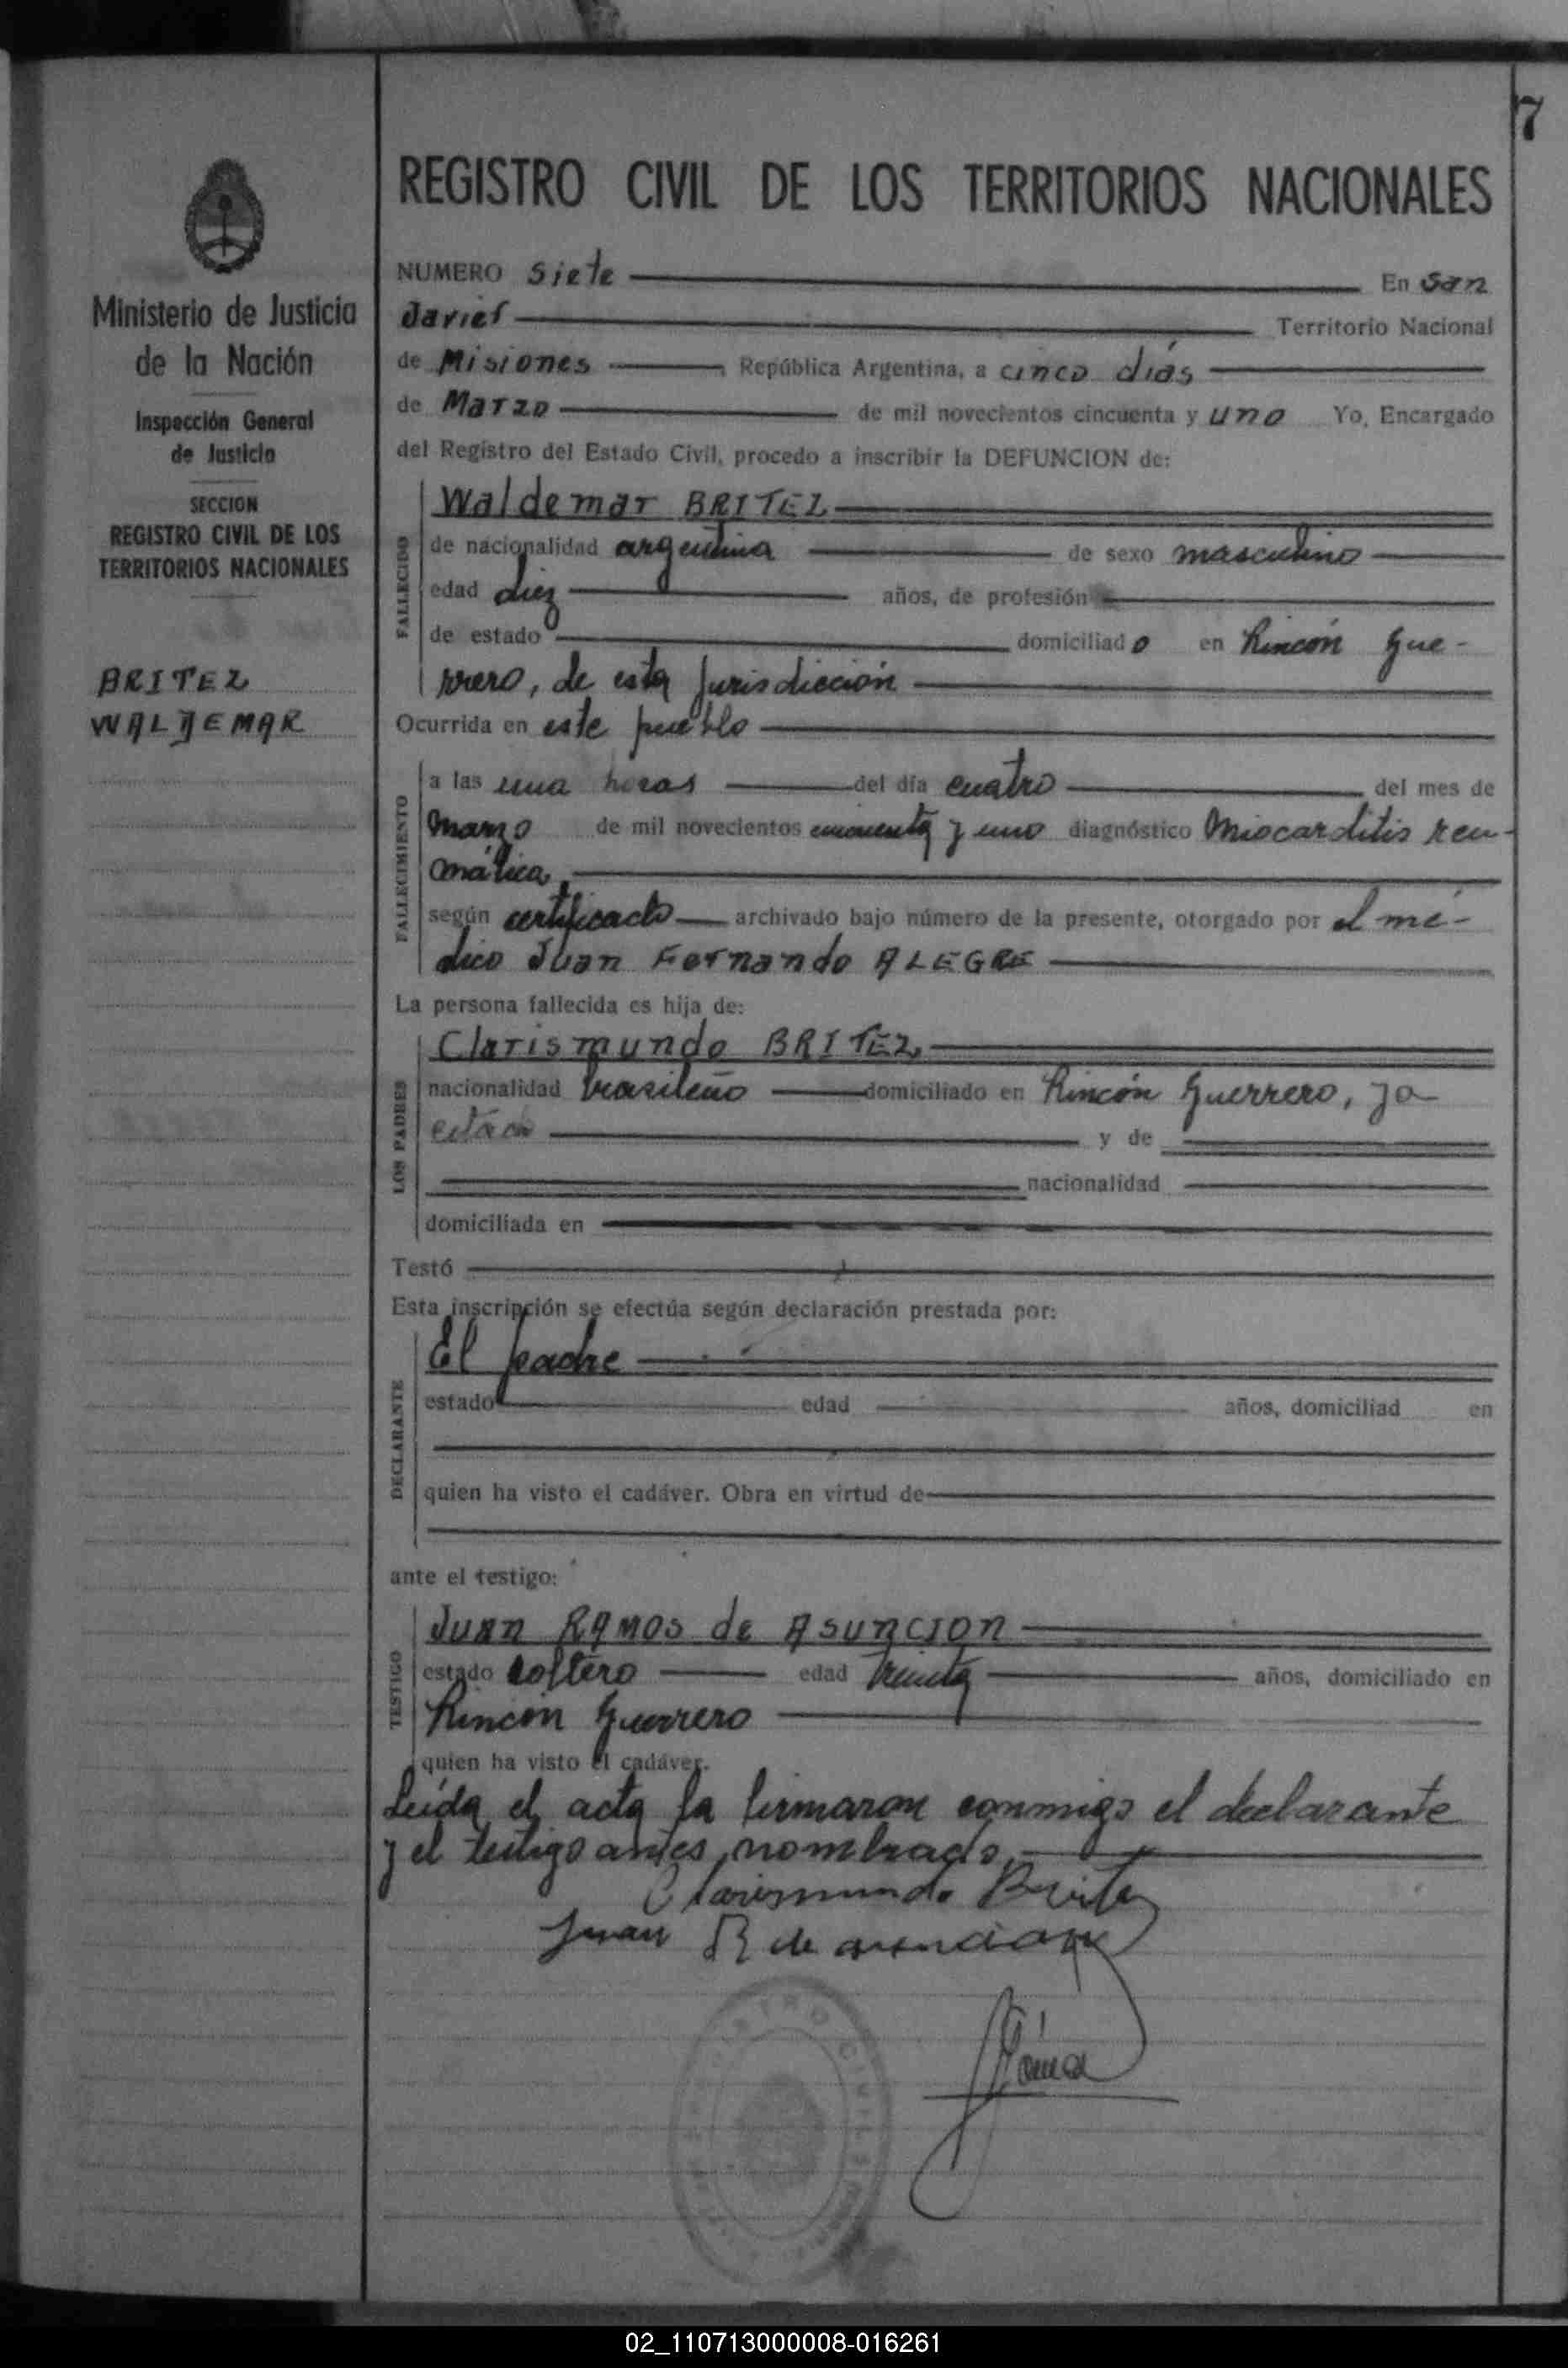 7
REGISTRO CIVIL DE LOS TERRITORIOS NACIONALES
Ministerio de Justicia
de la Nación
Inspección General
de Justicia
SECCION
REGISTRO CIVIL DE LOS
TERRITORIOS NACIONALES
BRITEZ
WALDEMAR
NUMERO Siete En San
Javier Territorio Nacional
de Misiones República Argentina, a cinco días
de Marzo de mil novecientos cincuenta y uno Yo, Encargado
del Registro del Estado Civil, procedo a inscribir la DEFUNCION de:
FALLECIDO
Waldemar BRITEZ
de nacionalidad argentina de sexo masculino
edad diez años, de profesión
de estado domiciliado en Rincón Gue-
rrero, de esta Jurisdicción
Ocurrida en este pueblo
FALLECIMIENTO
a las una horas del día cuatro del mes de
marzo de mil novecientos cincuenta y uno diagnóstico Miocarditis reu-
mática
según certificado archivado bajo número de la presente, otorgado por el mé-
dico Juan Fernando ALEGRE
La persona fallecida es hija de:
LOS PADRES
Clarismundo BRITEZ
nacionalidad brasileño domiciliado en Rincón Guerrero,
y de
nacionalidad
domiciliada en
Testó
Esta inscripción se efectúa según declaración prestada por:
DECLARANTE
El padre
estado edad años, domiciliad en
quien ha visto el cadáver. Obra en virtud de
ante el testigo:
TESTIGO
Juan RAMOS de ASUNCION
estado soltero edad treinta años, domiciliado en
Rincón Guerrero
quien ha visto el cadáver.
Leída el acta la firmaron conmigo el declarante
y el testigo antes nombrado.
Clarismundo Britez
Juan R de asuncion
02_110713000008-016261